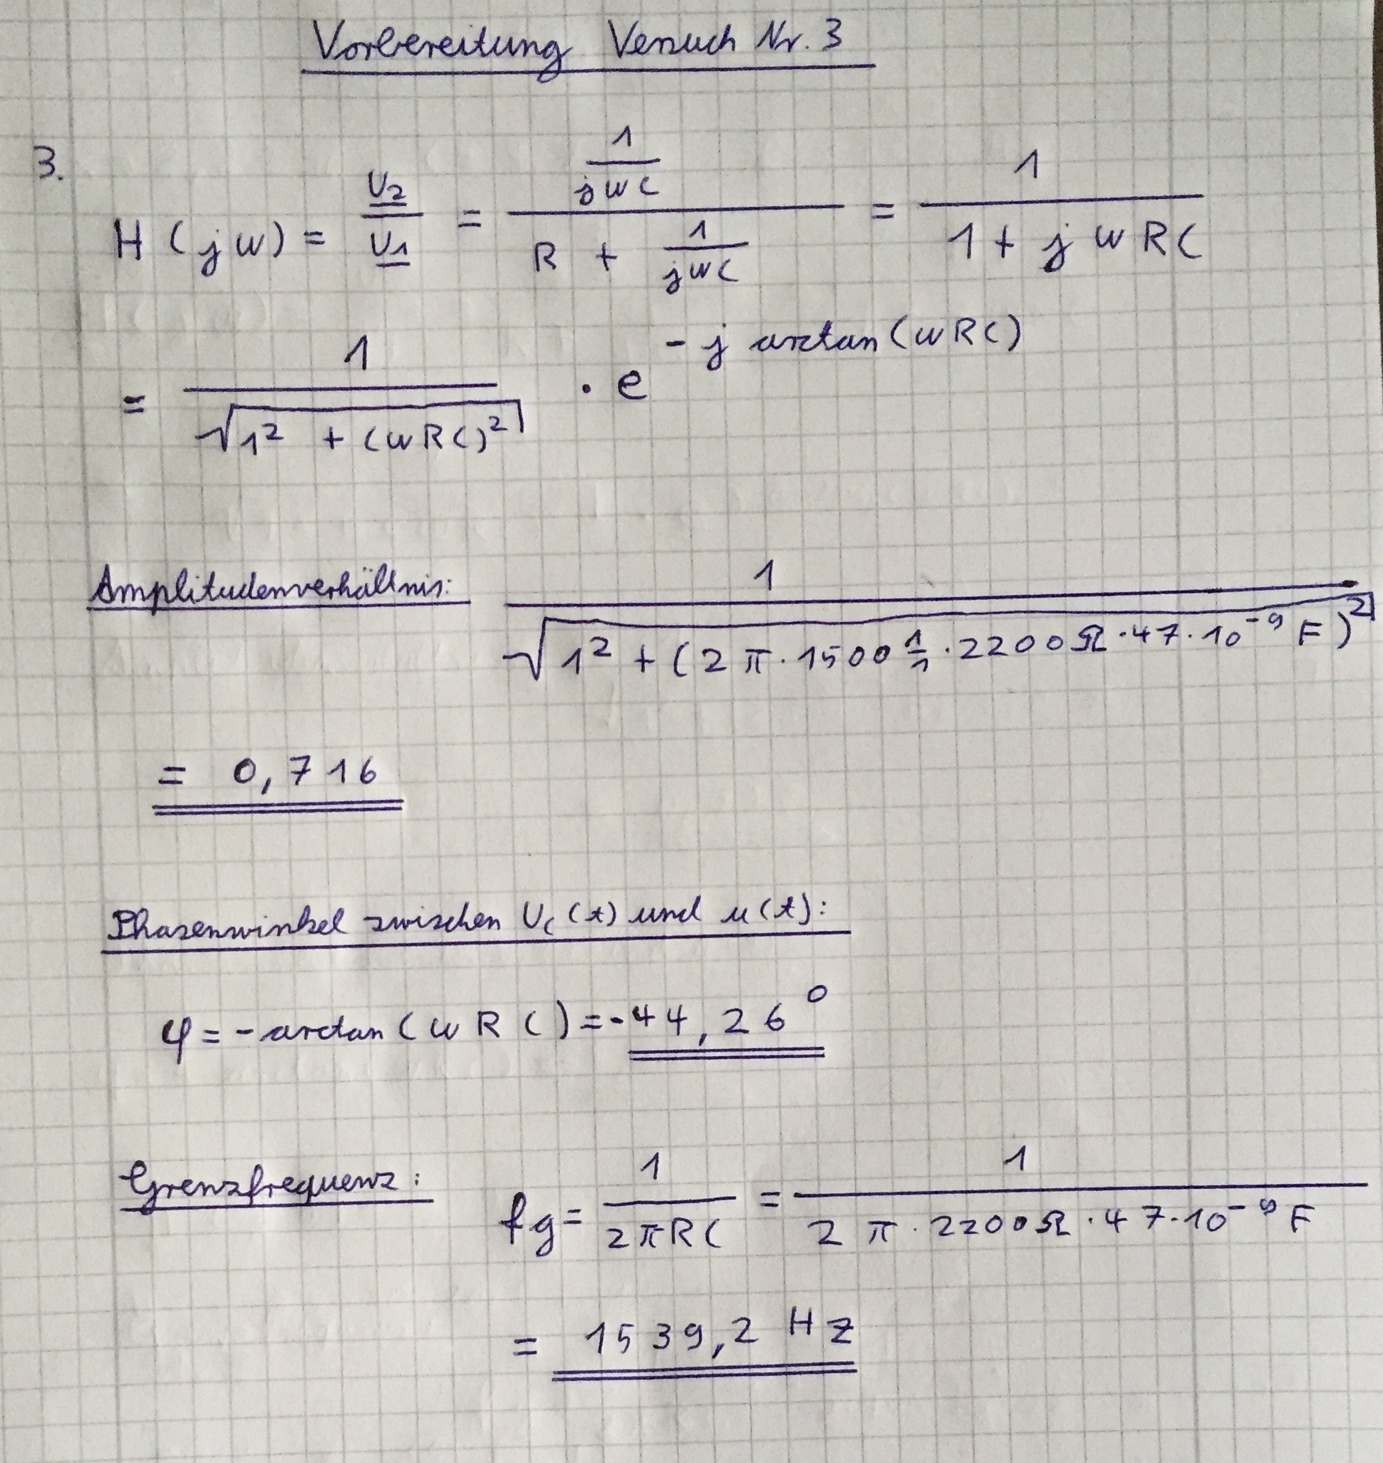 Vorbereitung Versuch Nr. 3
3.
H(jω) = U2/U1 = (1/(jωC))/(R + 1/(jωC)) = 1/(1 + jωRC)
= 1/√(1² + (ωRC)²) · e^(-j arctan(ωRC))
Amplitudenverhältnis: 1/√(1² + (2π · 1500 1/s · 2200Ω · 47 · 10⁻⁹ F)²)
= 0,716
Phasenwinkel zwischen Uc(t) und u(t):
φ = -arctan(ωRC) = -44,26°
Grenzfrequenz: fg = 1/(2πRC) = 1/(2π · 2200Ω · 47 · 10⁻⁹ F)
= 1539,2 Hz